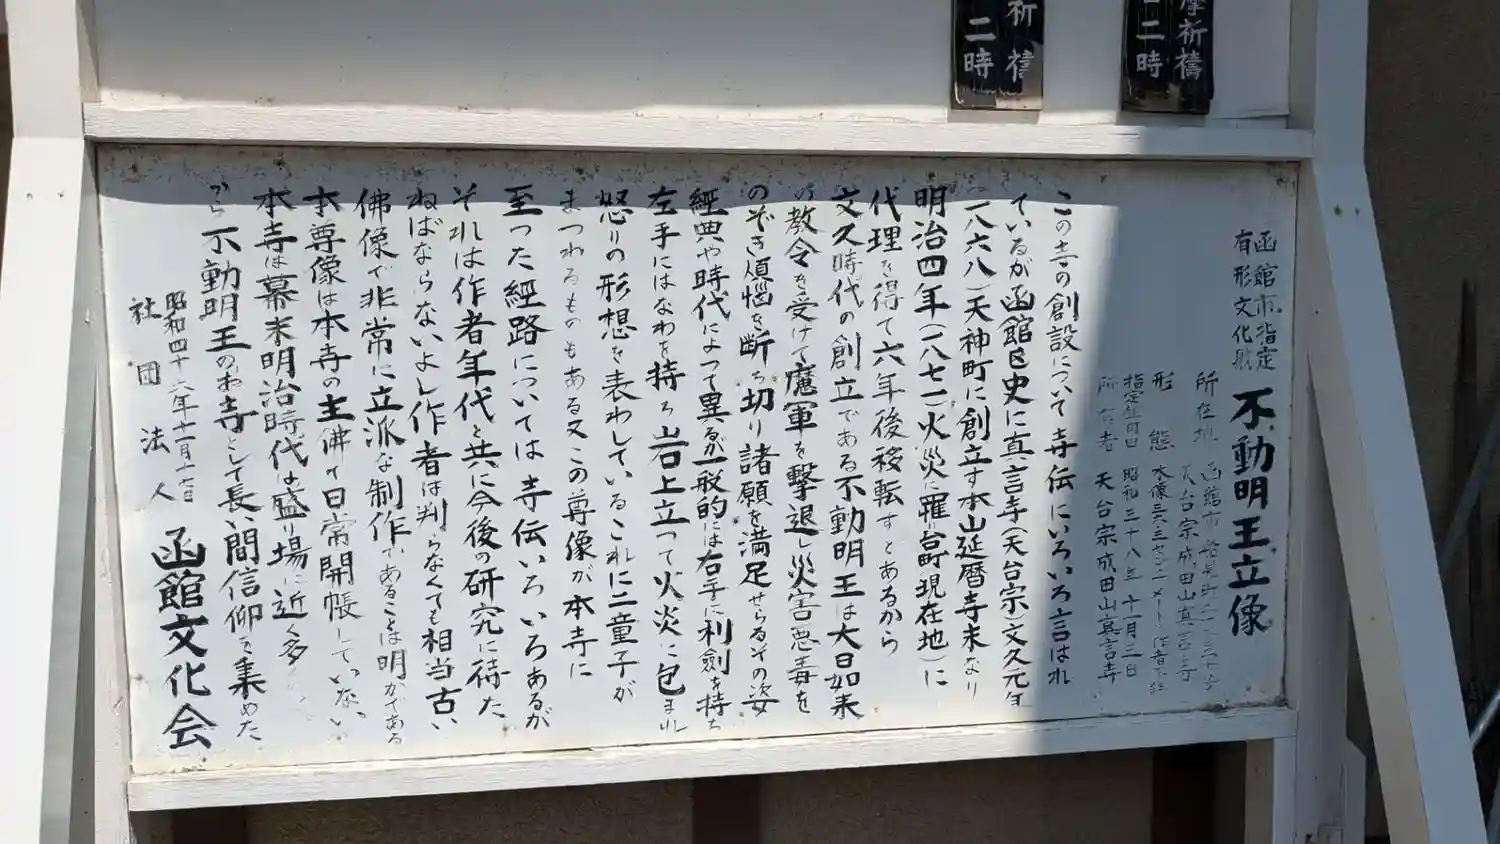 摩祈禱
二時
祈禱
二時
函館市指定
有形文化財
不動明王立像
所在地 函館市
天台宗成田山真言寺
形態 木像
指定年月日 昭和三十八年十一月三日
所有者 天台宗成田山真言寺
この寺の創設について寺伝にいろいろ言はれ
ているが函館邑史に真言寺(天台宗)文久元年
(一八六八)天神町に創立す本山延暦寺末なり
明治四年(一八七一)火災に罹り台町(現在地)に
代理を得て六年後移転すとあるから
文久時代の創立である不動明王は大日如来
の教令を受けて魔軍を撃退し災害悪毒を
のぞき煩悩を断ち切り諸願を満足せらるその姿
経典や時代によって異るが一般的には右手に利劍を持ち
左手にはなわを持ち岩上立つて火炎に包まれ
怒りの形想を表わしているこれに二童子が
まつわるものもある又この尊像が本寺に
至った経路については寺伝いろいろあるが
それは作者年代と共に今後の研究に待た
ねばならないよし作者は判らなくても相当古い
佛像で非常に立派な制作であることは明かである
本尊像は本寺の主佛で日常開帳していない
本寺は幕末明治時代は盛り場に近く多く
から不動明王のお寺として長い間信仰を集めた
昭和四十六年十一月
社団法人 函館文化会